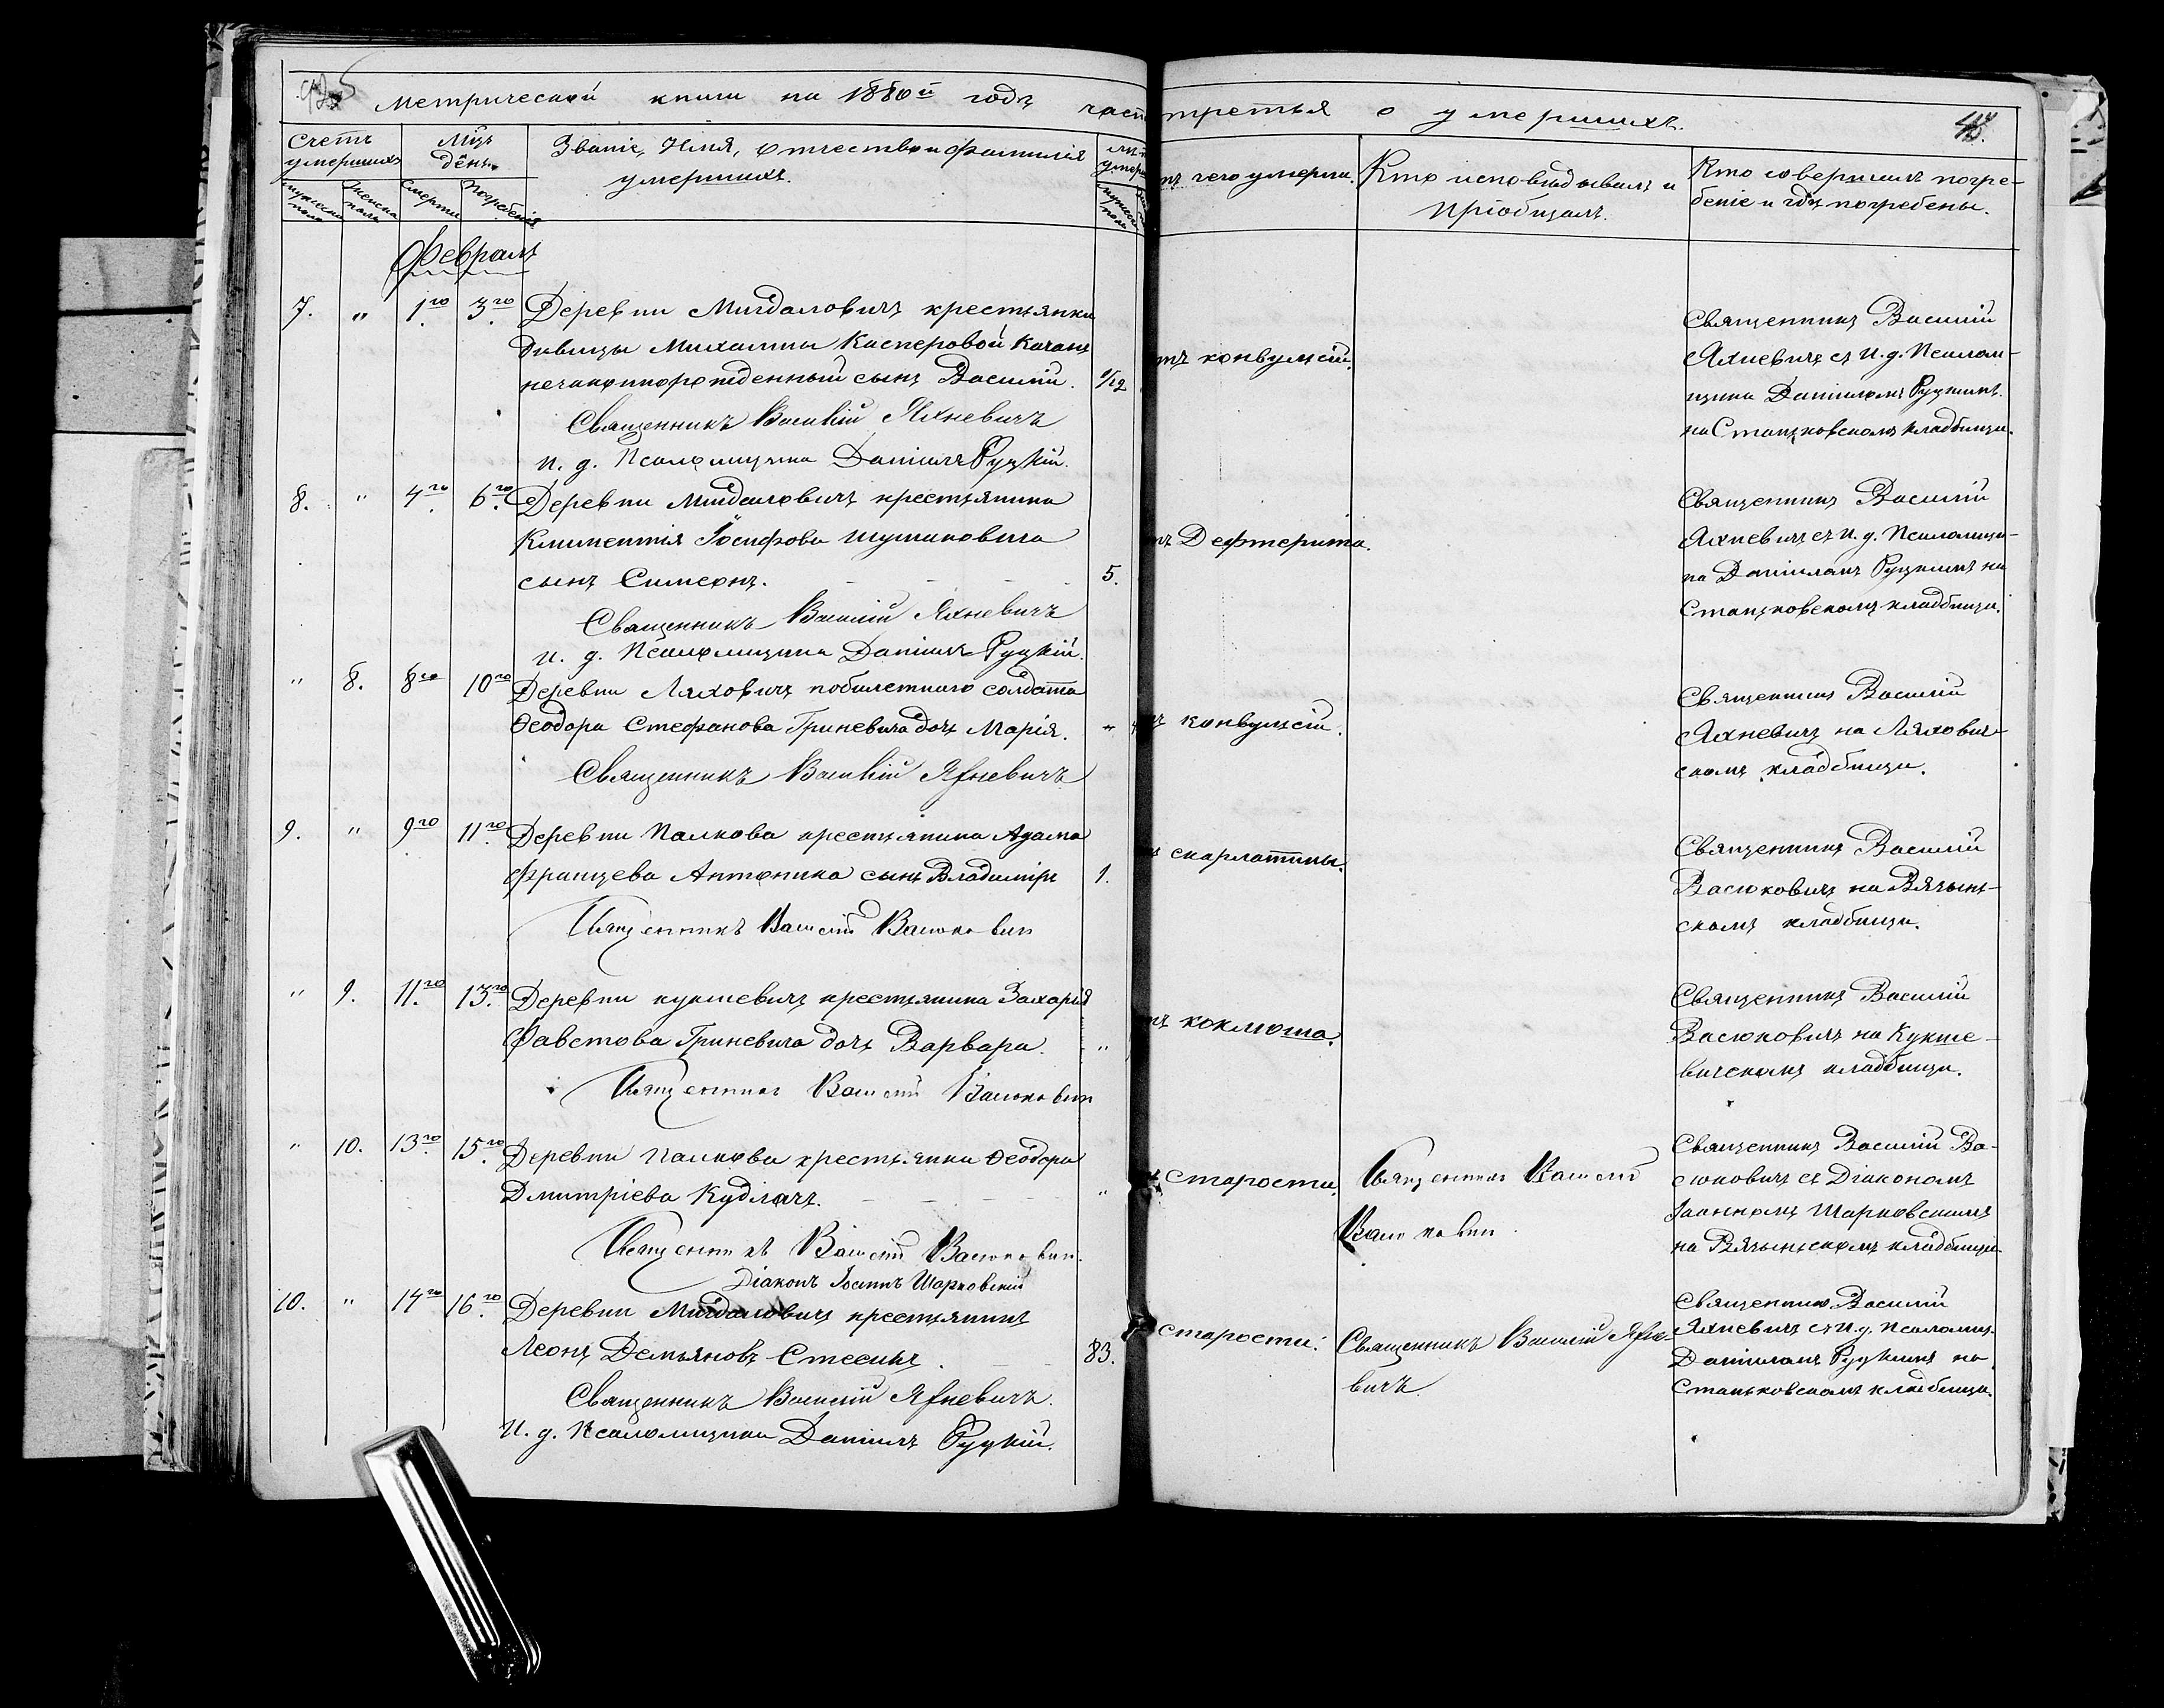 Метрической книги на 1880й годъ част третья о умершихъ.
Счетъ умершихъ
Мцъ день
Званіе, Имя, отчество и фамилія умершихъ.
чего умерли.
Кто исповѣдывалъ и пріобщалъ.
Кто совершилъ погребеніе и гдѣ погребены.
мужеска полъ
женска полъ
Смерти
Погребенія
Февраль
7. " 1го 3го Деревни Мигдаловичъ крестьянки
дѣвицы Михалины Касперовой Качанъ
незаконнорожденный сынъ Василій. 1/12
Священникъ Василій Яхневичъ
и. д. Псаломщика Даніилъ Руцкій.
тъ конвульсій.
Священникъ Василій
Яхневичъ съ И. д. Псалом-
щика Даніиломъ Руцкимъ
на Станьковскомъ кладбищи.
8. " 4го 6го Деревни Мигдаловичъ крестьянина
Климентія Іосифова Шумановича
сынъ Симеонъ. 5.
Священникъ Василій Яхневичъ
и. д. Псаломщика Даніилъ Руцкій.
Дефтерита.
Священникъ Василій
Яхневичъ съ И. д. Псаломщи-
ка Даніиломъ Руцкимъ на
Станьковскомъ кладбищи.
" 8. 8го 10го Деревни Ляховичъ побилетнаго солдата
Ѳеодора Стефанова Гриневича дочь Марія. "
Священникъ Василій Яхневичъ
конвульсій.
Священникъ Василій
Яхневичъ на Ляхович-
скомъ кладбищи.
9. " 9го 11го Деревни Палкова крестьянина Адама
Францева Антоника сынъ Владиміръ 1.
Священникъ Василій Васюковичъ
скарлатины.
Священникъ Василій
Васюковичъ на Вячинь-
скомъ кладбищи.
" 9. 11го 13го Деревни кукшевичъ крестьянина Захарія
Фавстова Гриневича дочь Варвара. "
Священникъ Василій Васюковичъ
коклюша.
Священникъ Василій
Васюковичъ на Кукше-
вичскомъ кладбищи.
" 10. 13го 15го Деревни Палкова крестьянка Ѳеодора
Дмитріева Кудлачъ. "
Священникъ Василій Васюковичъ.
Діаконъ Іоаннъ Шарковскій
старости.
Священникъ Василій
Васюковичъ
Священникъ Василій Ва-
сюковичъ съ Діакономъ
Іоанномъ Шарковскимъ
на Вячиньскомъ кладбищи.
10. " 14го 16го Деревни Мигдаловичъ крестьянинъ
Леонъ Демьяновъ Стесикъ. 83.
Священникъ Василій Яхневичъ.
И. д. Псаломщика Даніилъ Руцкій.
старости.
Священникъ Василій Яхне-
вичъ
Священник Василій
Яхневичъ съ И. д. Псаломщ.
Даніиломъ Руцкимъ на
Станьковскомъ кладбищи.